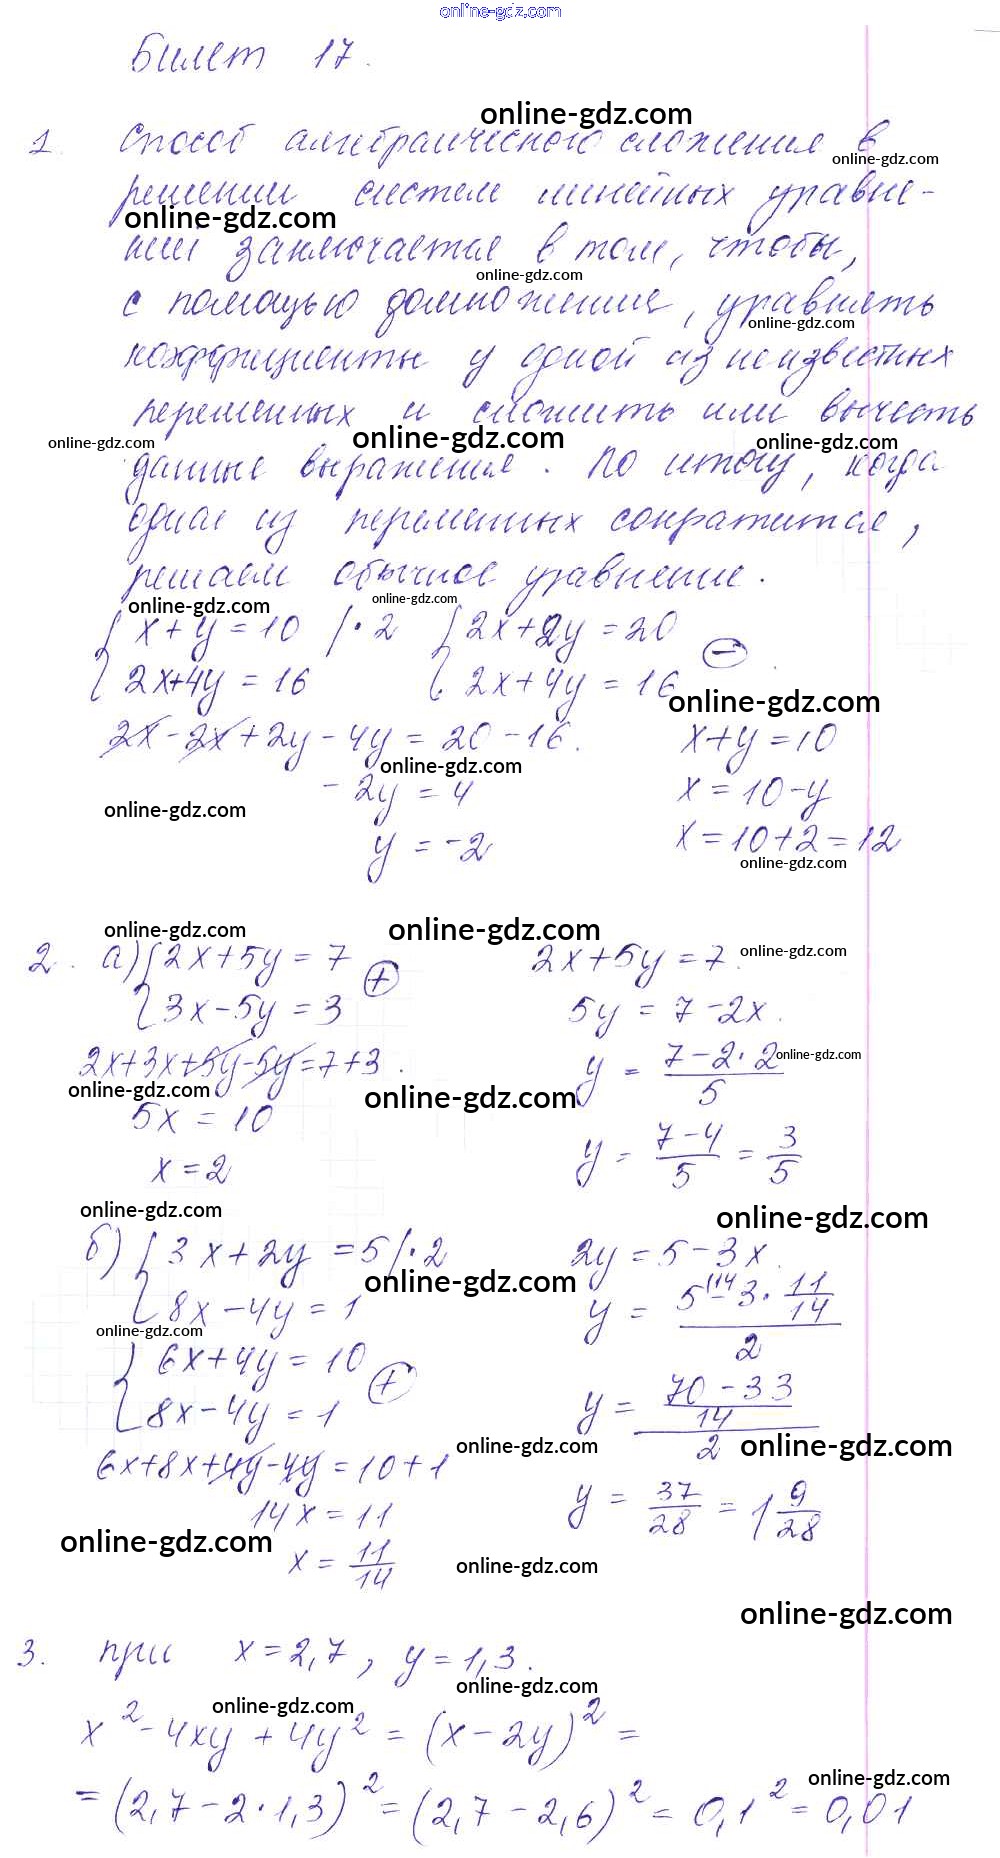 online-gdz.com
Билет 17.
online-gdz.com
1. Способ алгебраического сложения в
online-gdz.com
решении систем линейных уравне-
online-gdz.com
ний заключается в том, чтобы,
online-gdz.com
с помощью домножения, уравнять
online-gdz.com
коэффициенты у одной из неизвестных
переменных и сложить или вычесть
online-gdz.com online-gdz.com online-gdz.com
данные выражения. По итогу, когда
одна из переменных сократится,
решаем обычное уравнение.
online-gdz.com online-gdz.com
{ x+y=10 |·2 { 2x+2y=20
2x+4y=16 2x+4y=16 (−)
online-gdz.com
2x-2x+2y-4y=20-16. x+y=10
online-gdz.com
-2y=4 x=10-y
online-gdz.com
y=-2 x=10+2=12
online-gdz.com
online-gdz.com online-gdz.com
2. а) { 2x+5y=7 (+) 2x+5y=7.
online-gdz.com
3x-5y=3 5y=7-2x.
2x+3x+5y-5y=7+3. y = (7-2·2)/5
online-gdz.com
online-gdz.com online-gdz.com
5x=10 y = (7-4)/5 = 3/5
x=2
online-gdz.com online-gdz.com
б) { 3x+2y=5 |·2 2y=5-3x.
online-gdz.com
8x-4y=1 y = (5^(14 - 3·11/14)/2
online-gdz.com
{ 6x+4y=10 (+) y = ((70-33)/14)/2
8x-4y=1
online-gdz.com online-gdz.com
6x+8x+4y-4y=10+1 y = 37/28 = 1 9/28
14x=11
online-gdz.com
x = 11/14
online-gdz.com
online-gdz.com
3. при x=2,7, y=1,3.
online-gdz.com
online-gdz.com
x²-4xy+4y²=(x-2y)²=
online-gdz.com
=(2,7-2·1,3)²=(2,7-2,6)²=0,1²=0,01